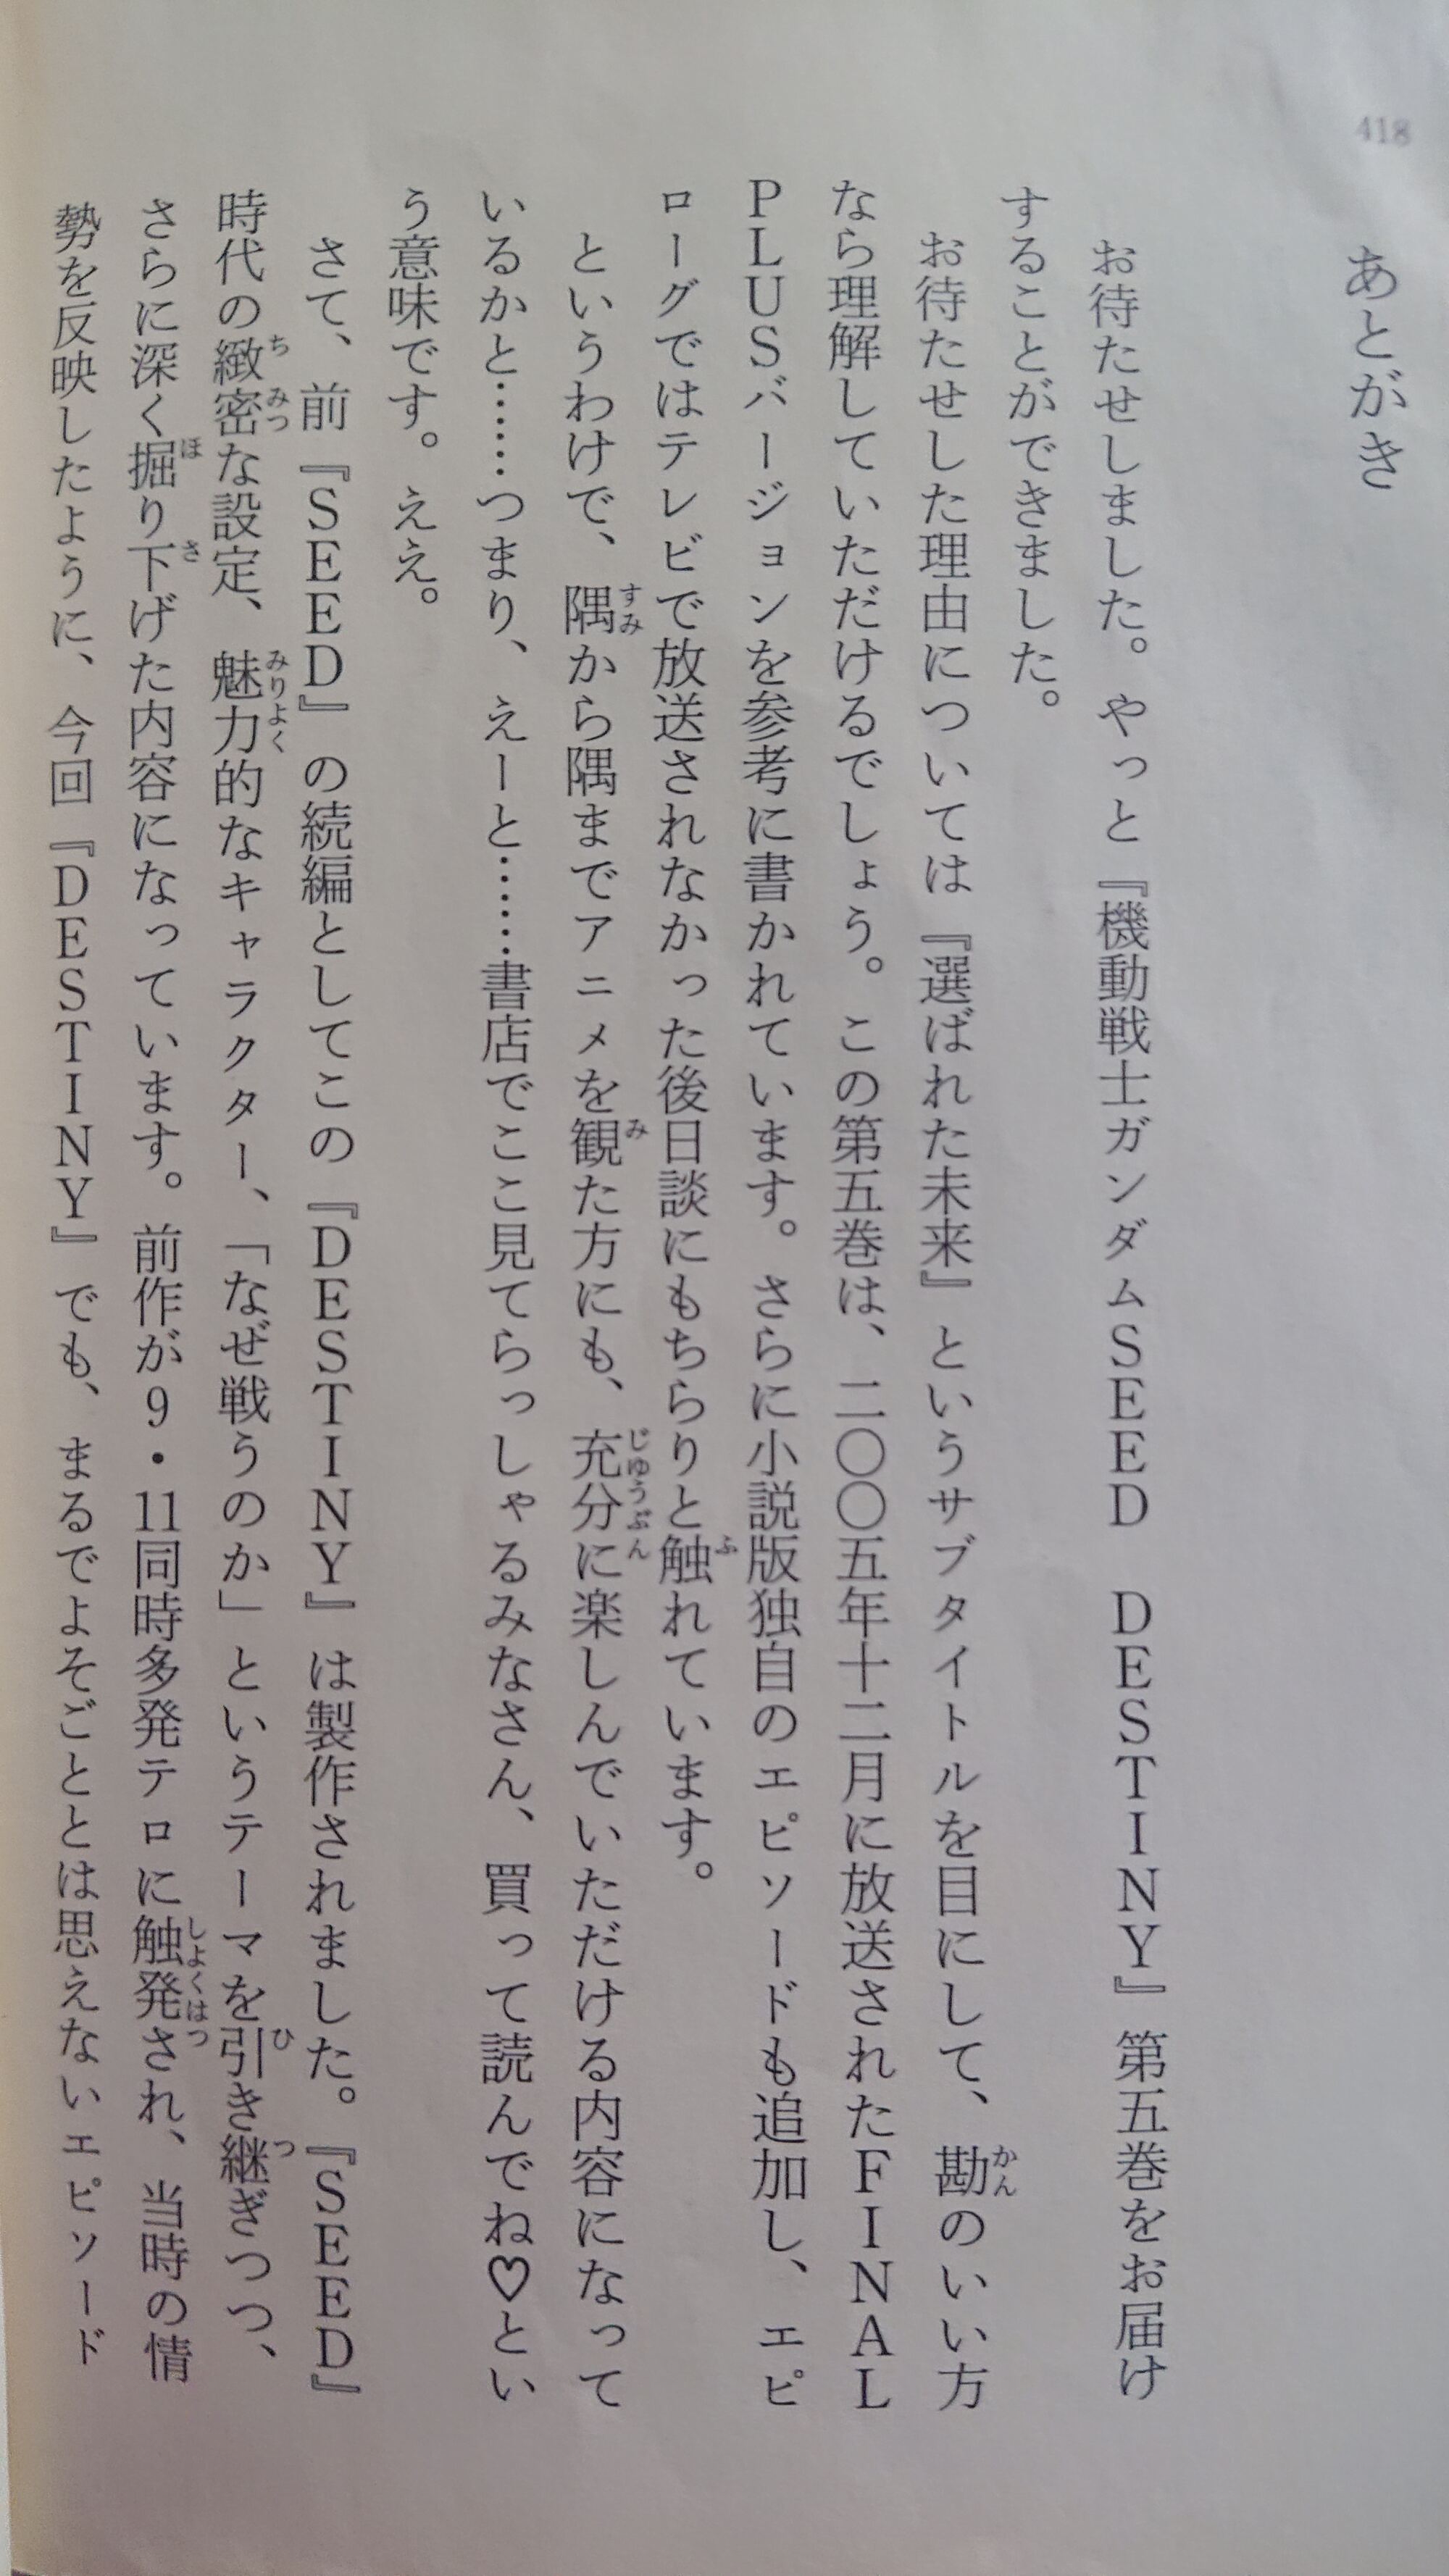 418
あとがき
お待たせしました。やっと『機動戦士ガンダムSEED DESTINY』第五巻をお届け
することができました。
お待たせした理由については『選ばれた未来』というサブタイトルを目にして、勘のいい方
なら理解していただけるでしょう。この第五巻は、二〇〇五年十二月に放送されたFINAL
PLUSバージョンを参考に書かれています。さらに小説版独自のエピソードも追加し、エピ
ローグではテレビで放送されなかった後日談にもちらりと触れています。
というわけで、隅から隅までアニメを観た方にも、充分に楽しんでいただける内容になって
いるかと……つまり、えーと……書店でここ見てらっしゃるみなさん、買って読んでね♡とい
う意味です。ええ。
さて、前『SEED』の続編としてこの『DESTINY』は製作されました。『SEED』
時代の緻密な設定、魅力的なキャラクター、「なぜ戦うのか」というテーマを引き継ぎつつ、
さらに深く掘り下げた内容になっています。前作が9・11同時多発テロに触発され、当時の情
勢を反映したように、今回『DESTINY』でも、まるでよそごととは思えないエピソード